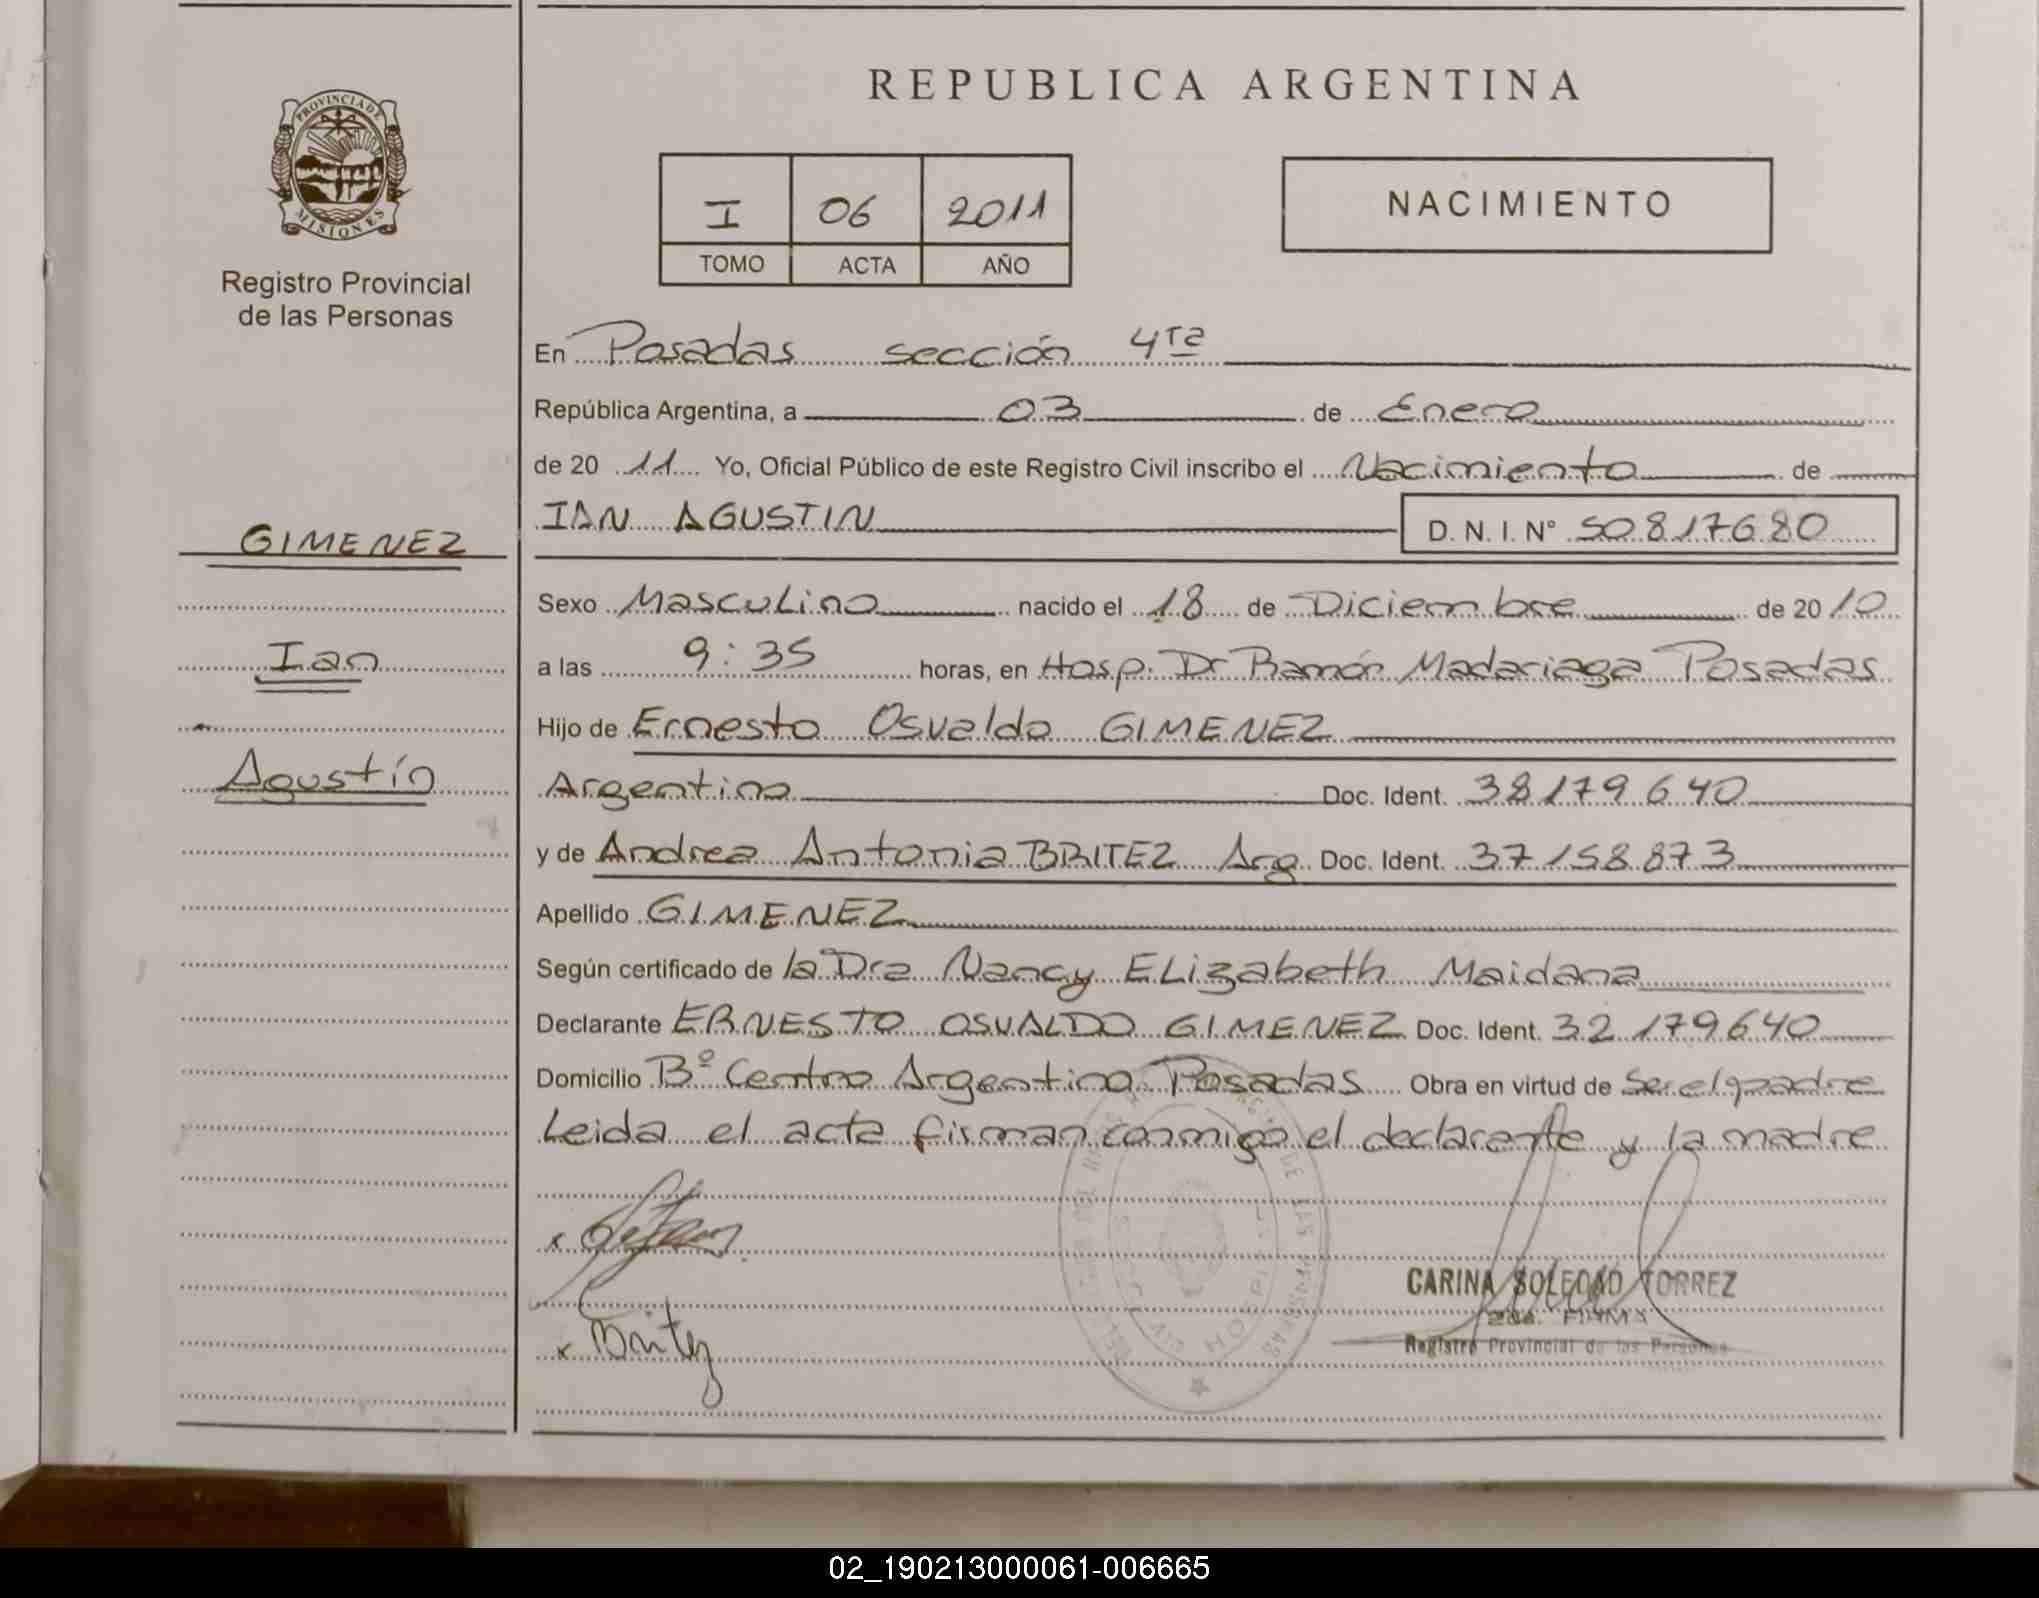 PROVINCIA DE
MISIONES
Registro Provincial
de las Personas
GIMENEZ
Ian
Agustín
REPUBLICA ARGENTINA
I 06 2011
TOMO ACTA AÑO
NACIMIENTO
En Posadas sección 4ta
República Argentina, a 03 de Enero
de 20 11 Yo, Oficial Público de este Registro Civil inscribo el Nacimiento de
IAN AGUSTIN D. N. I. N° 50817680
Sexo Masculino nacido el 18 de Diciembre de 2010
a las 9:35 horas, en Hosp. Dr Ramón Madariaga Posadas
Hijo de Ernesto Osvaldo GIMENEZ
Argentino Doc. Ident. 38179640
y de Andrea Antonia BRITEZ Arg. Doc. Ident. 37158873
Apellido GIMENEZ
Según certificado de la Dra Nancy ELizabeth Maidana
Declarante ERNESTO OSVALDO GIMENEZ Doc. Ident. 32179640
Domicilio Bº Centro Argentino Posadas Obra en virtud de Ser el padre
Leida el acta firman conmigo el declarante y la madre
x
x Britez
CARINA SOLEDAD TORREZ
2da. FIRMA
Registro Provincial de las Personas
02_190213000061-006665